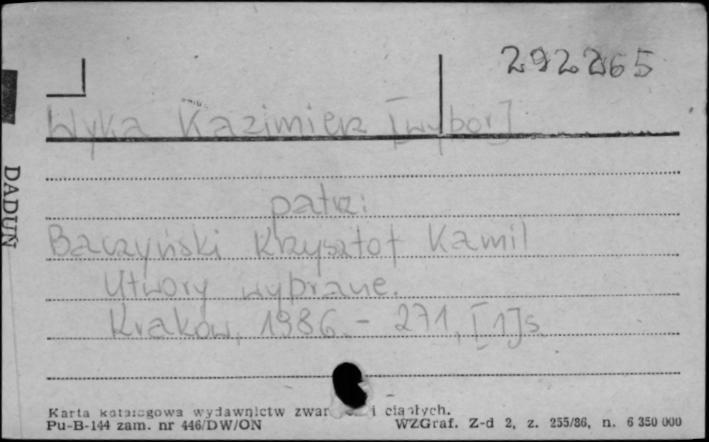 292265
Wyka Kazimierz [wybór]
patrz:
Baczyński Krzysztof Kamil
Utwory wybrane.
Kraków, 1986. - 271, [1]s.
DADUŃ
Karta katalogowa wydawnictw zwar i ciągłych.
Pu-B-144 zam. nr 446/DW/ON WZGraf. Z-d 2, z. 255/86, n. 6 350 000